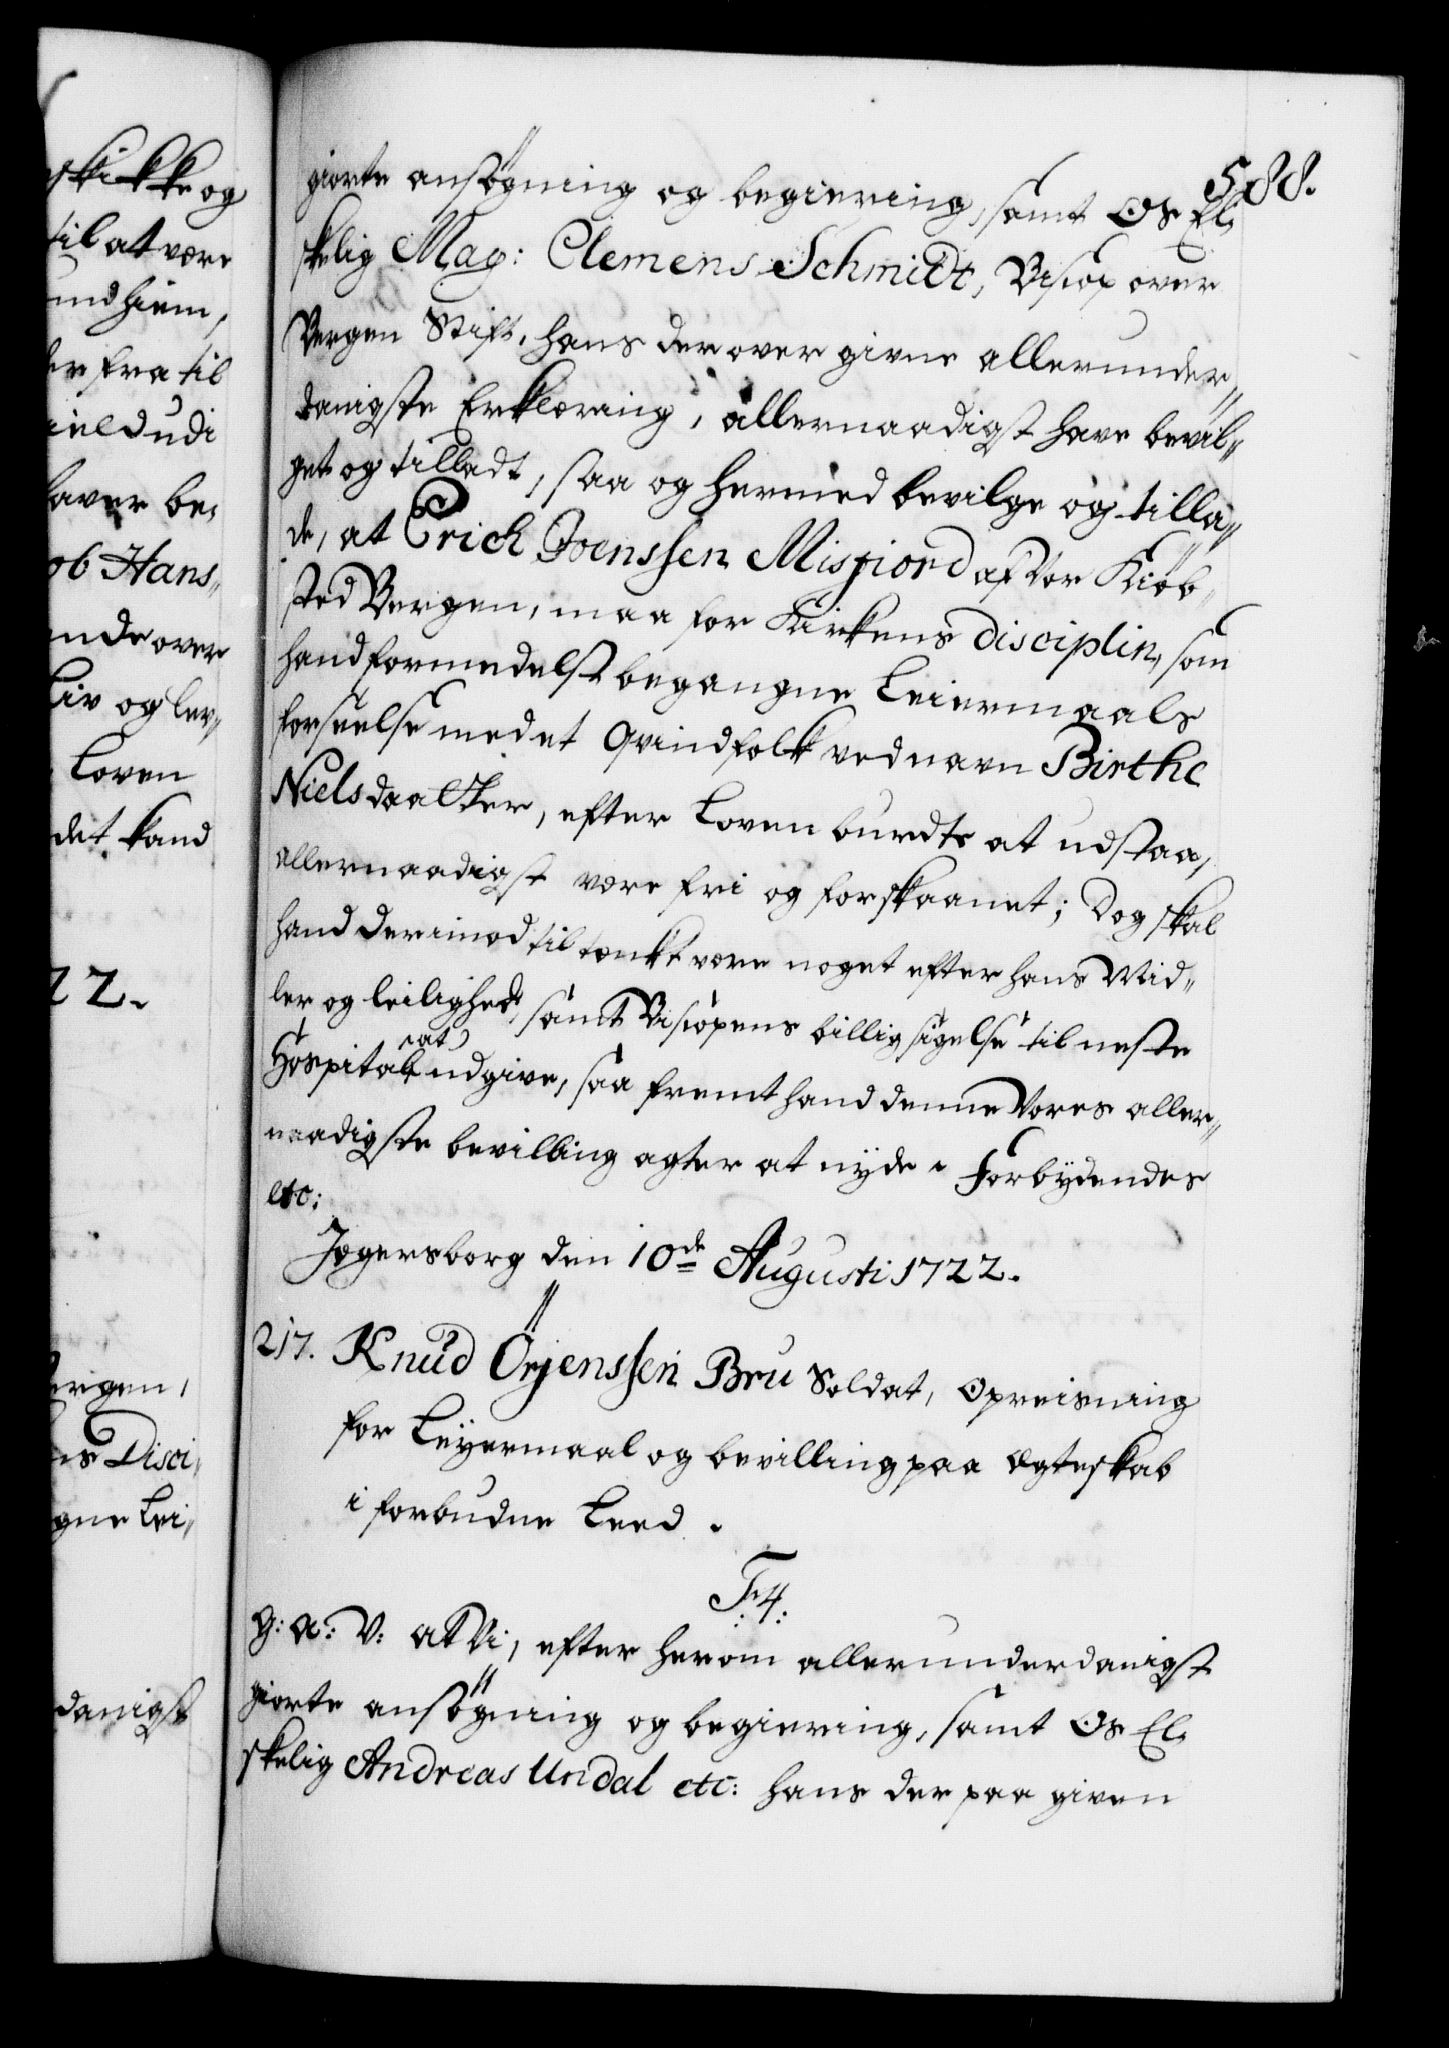 skikke og
til at være
undhiem,
der fra til
ield udi
haver be,
ob Hans,,
ende over
Liv og lev,,
Loven
det kand
22.
ergen,
ns Disci,,
gne Lei,,
danigst
588.
giorte ansøgning og begiering, samt Os El,
skelig Mag: Clemens Schmidt, Biscop over
Bergen Stift, hans derover givne allerunder,,
danigste Erklæring, allernaadigst have bevil,,
get og tilladt, saa og hermed bevilge og tilla,,
de, at Erich Joenssen Misfiord af Vor Kiøb,,
sted Bergen, maa for Kirkens disciplin, som
hand formedelst begangne Leiermaals
forseelse med et Qvindfolk ved navn Birthe
Nielsdaatter, efter Loven burdte at udstaa,
allernaadigst være fri og forskaanet; Dog skal
hand derimod til tænkt være noget efter hans Mid,,
ler og leilighed, samt Biscopens billig sigelse til neste
Hospital at udgive, saa fremt hand denne Vores aller,,
naadigste bevilling agter at nyde. Forbydendes
etc:
Jægersborg den 10de Augusti 1722.
217. Knud Örjenssen Bru Soldat, Opreisning
for Leyermaal og bevilling paa Ægteskab
i forbudne Leed.
F. 4:
G: A: V: At Vi, efter herom allerunderdanigst
giorte ansøgning og begiering, samt Os El,
skelig Andreas Undal etc: hans der paa given